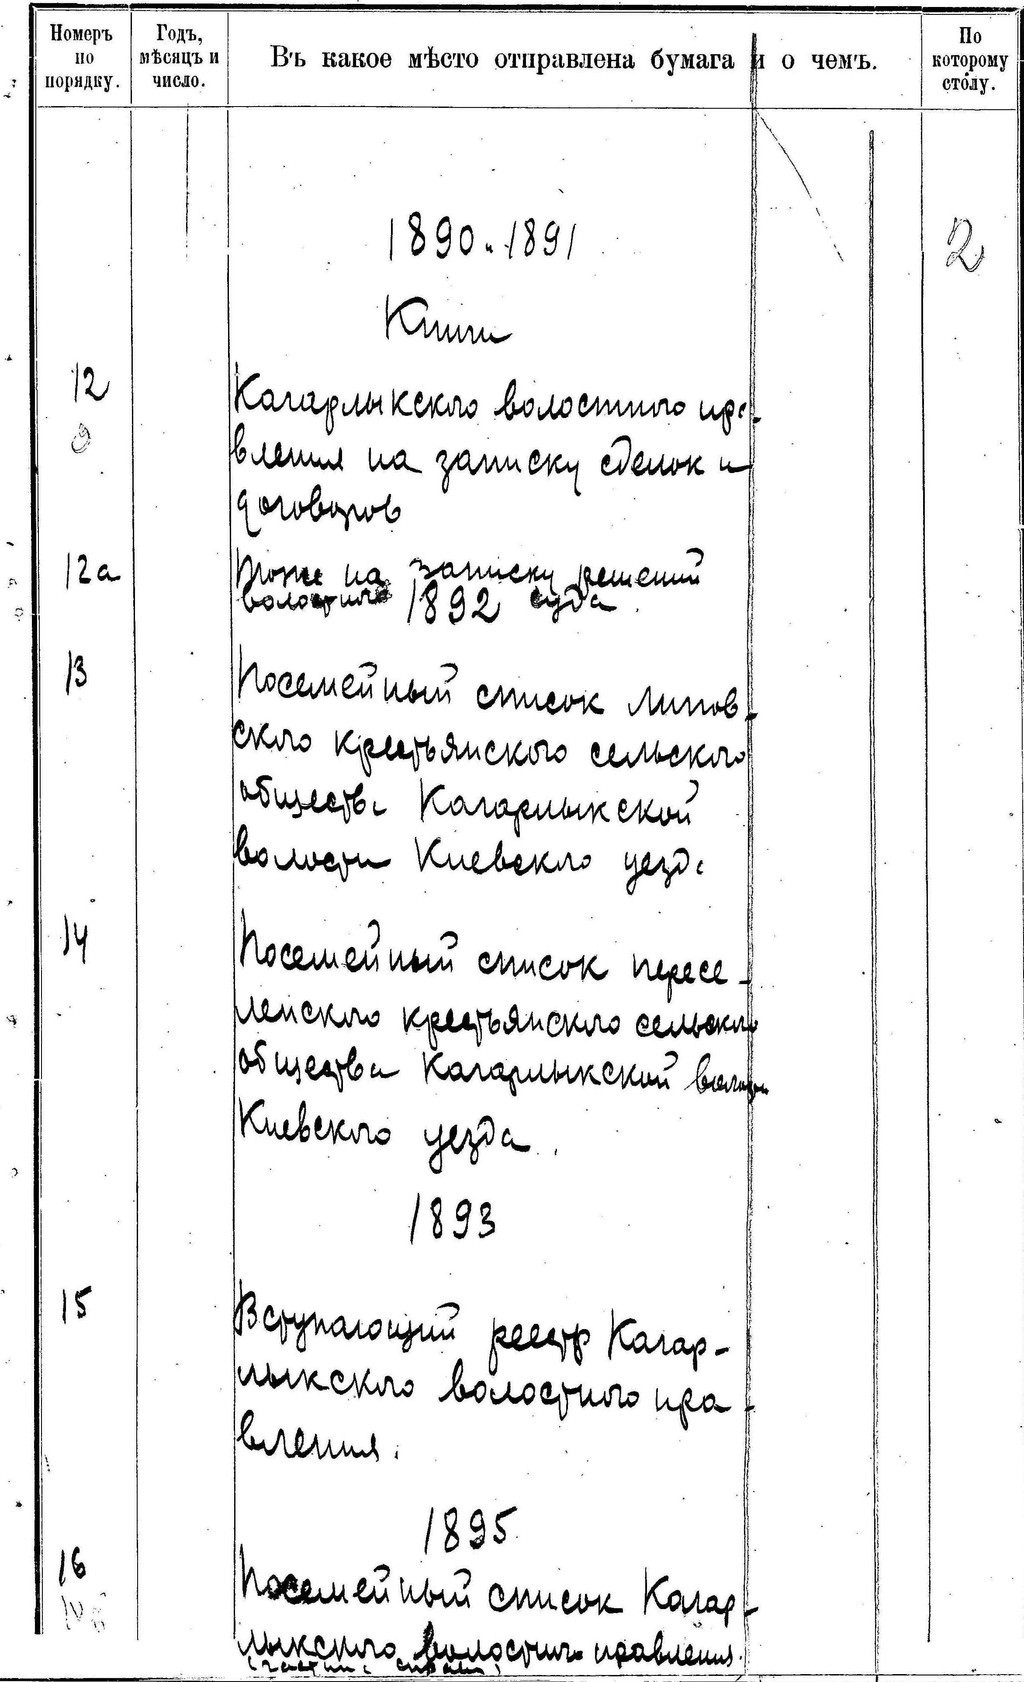 Номеръ по порядку.
Годъ, мѣсяцъ и число.
Въ какое мѣсто отправлена бумага и о чемъ.
По которому столу.
1890-1891
2
Книги
12
Кагарлыкского волостного пра-
вления на записку сделок и
договоров
12а
Тоже на записку решений
волостного суда
1892
13
Посемейный список Липов-
ского крестьянского сельского
общества Кагарлыкской
волости Киевского уезда
14
Посемейный список пересе-
ленского крестьянского сельского
общества Кагарлыкской волости
Киевского уезда.
1893
15
Вступающий реестр Кагар-
лыкского волостного пра-
вления.
1895
16
Посемейный список Кагар-
лыкского волостного правления.